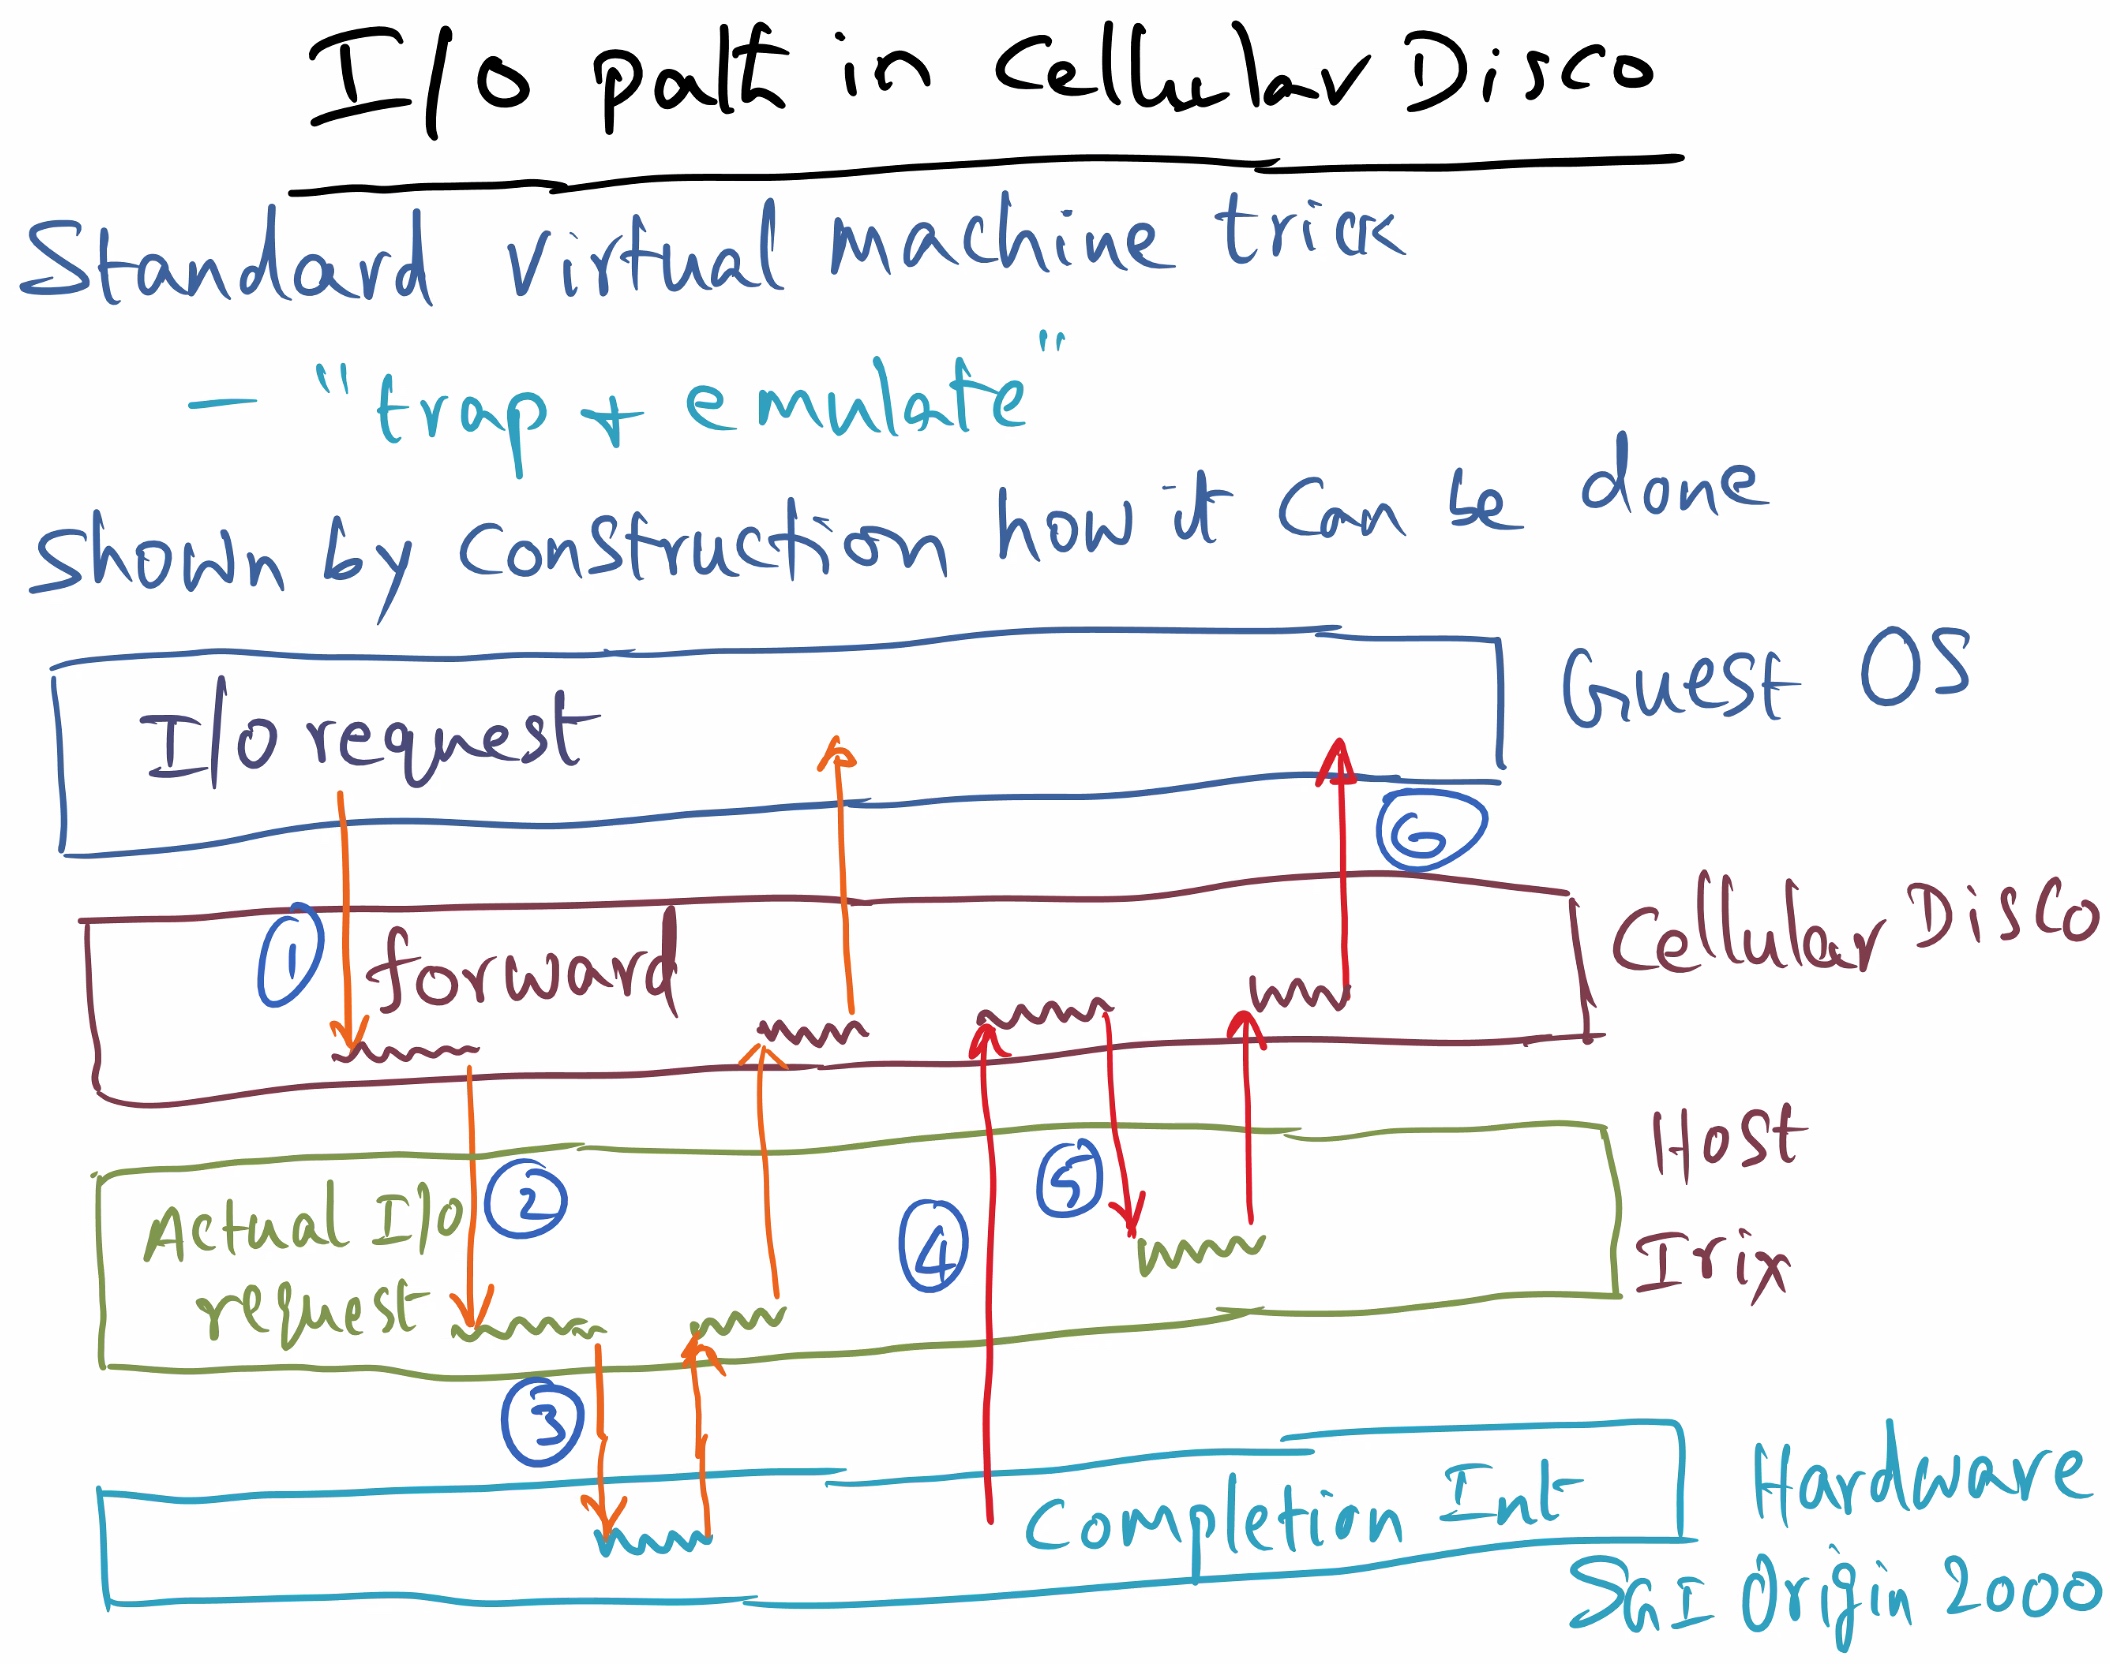 I/O path in Cellular Disco
Standard virtual machine trick
— "trap + emulate"
Shown by construction how it can be done
I/O request
Guest OS
6
1
forward
Cellular Disco
Actual I/O
request
2
4
5
Host
Irix
3
Completion Int
Hardware
SGI Origin 2000